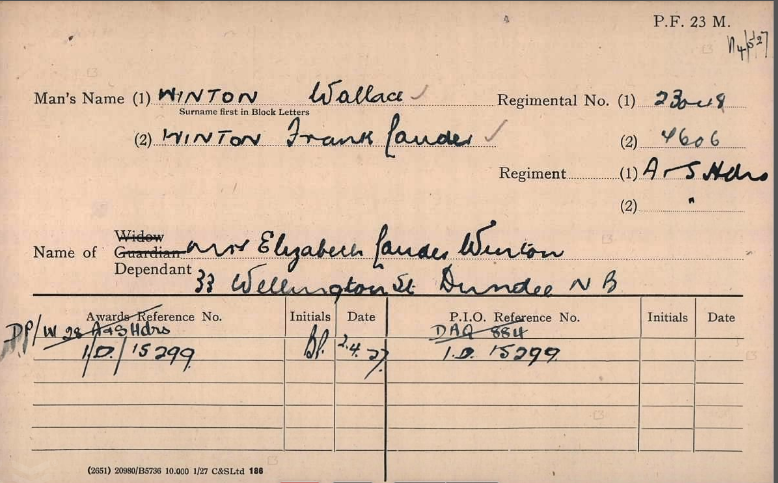 P.F. 23 M.
Man's Name (1) WINTON Wallace Regimental No. (1)
Surname first in Block Letters
(2) WINTON Frank Lauder (2) 4606
Regiment (1) A & S Hdrs
(2) "
Widow
Name of Guardian Mrs Elizabeth Lauder Winton
Dependant 33 Wellington St Dundee N B
Awards Reference No. Initials Date P.I.O. Reference No. Initials Date
DP/W 28 A&S Hdrs DAA 884
I.D./15299 2.4.27 I.D. 15299
(2651) 20980/B5736 10.000 1/27 C&SLtd 186